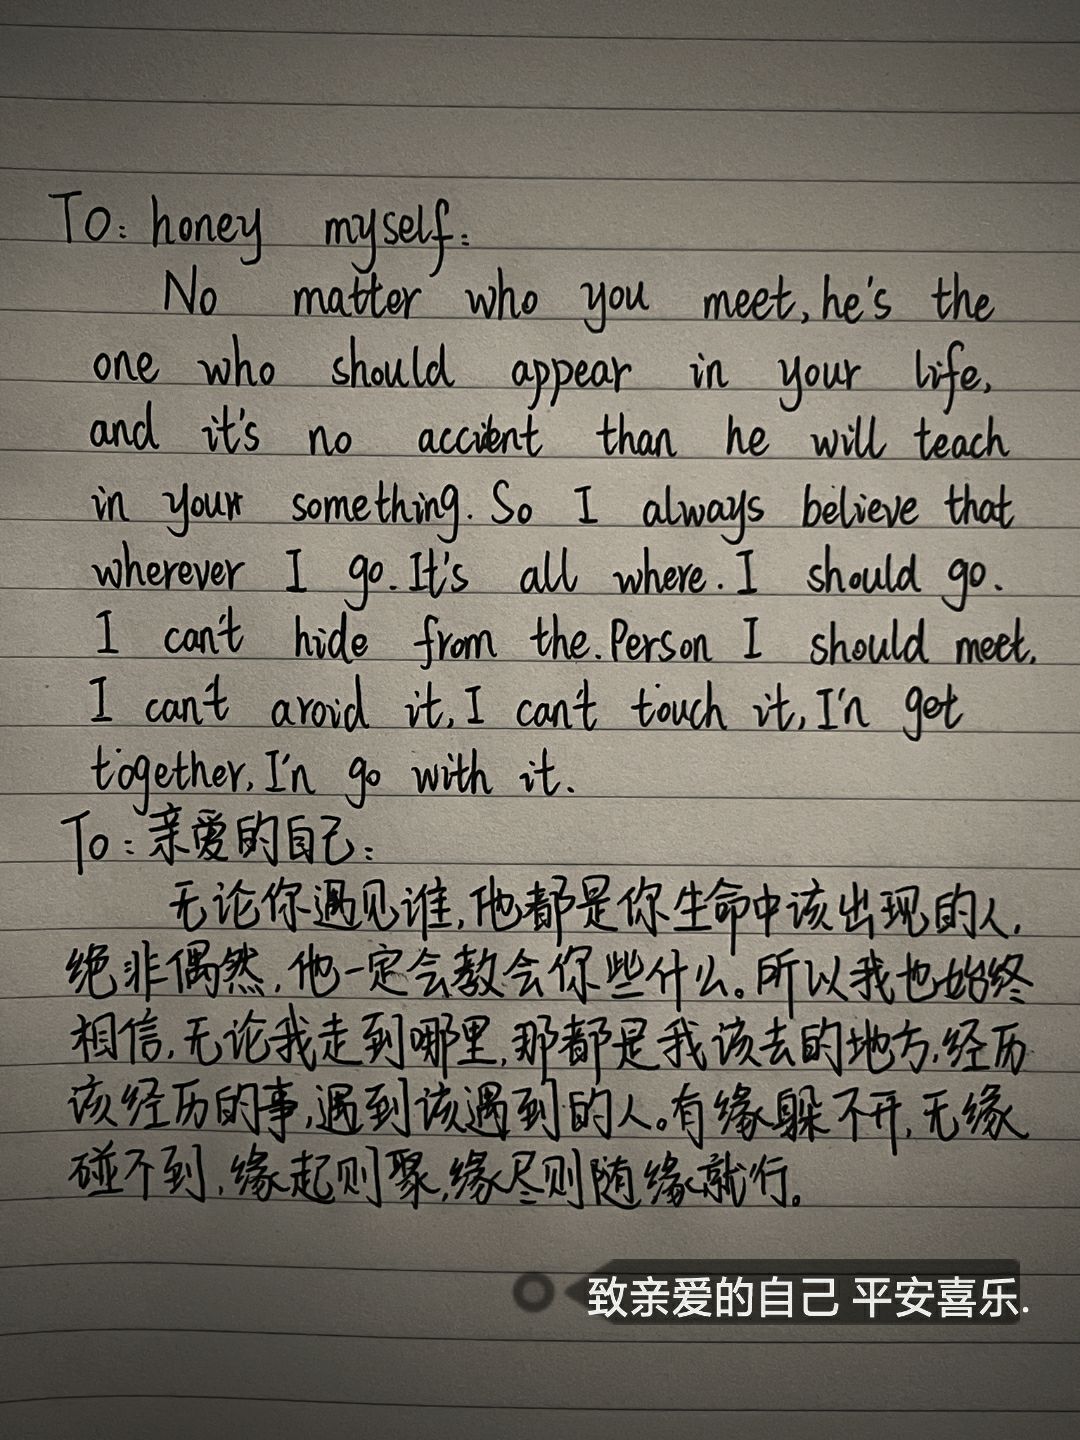 To: honey myself:
No matter who you meet, he's the
one who should appear in your life,
and it's no accident than he will teach
in your something. So I always believe that
wherever I go. It's all where. I should go.
I can't hide from the. Person I should meet.
I can't aroid it, I can't touch it, I'n get
together, I'n go with it.
To: 亲爱的自己:
无论你遇见谁,他都是你生命中该出现的人,
绝非偶然,他一定会教会你些什么。所以我也始终
相信,无论我走到哪里,那都是我该去的地方,经历
该经历的事,遇到该遇到的人。有缘躲不开,无缘
碰不到,缘起则聚,缘尽则随缘就行。
致亲爱的自己 平安喜乐.